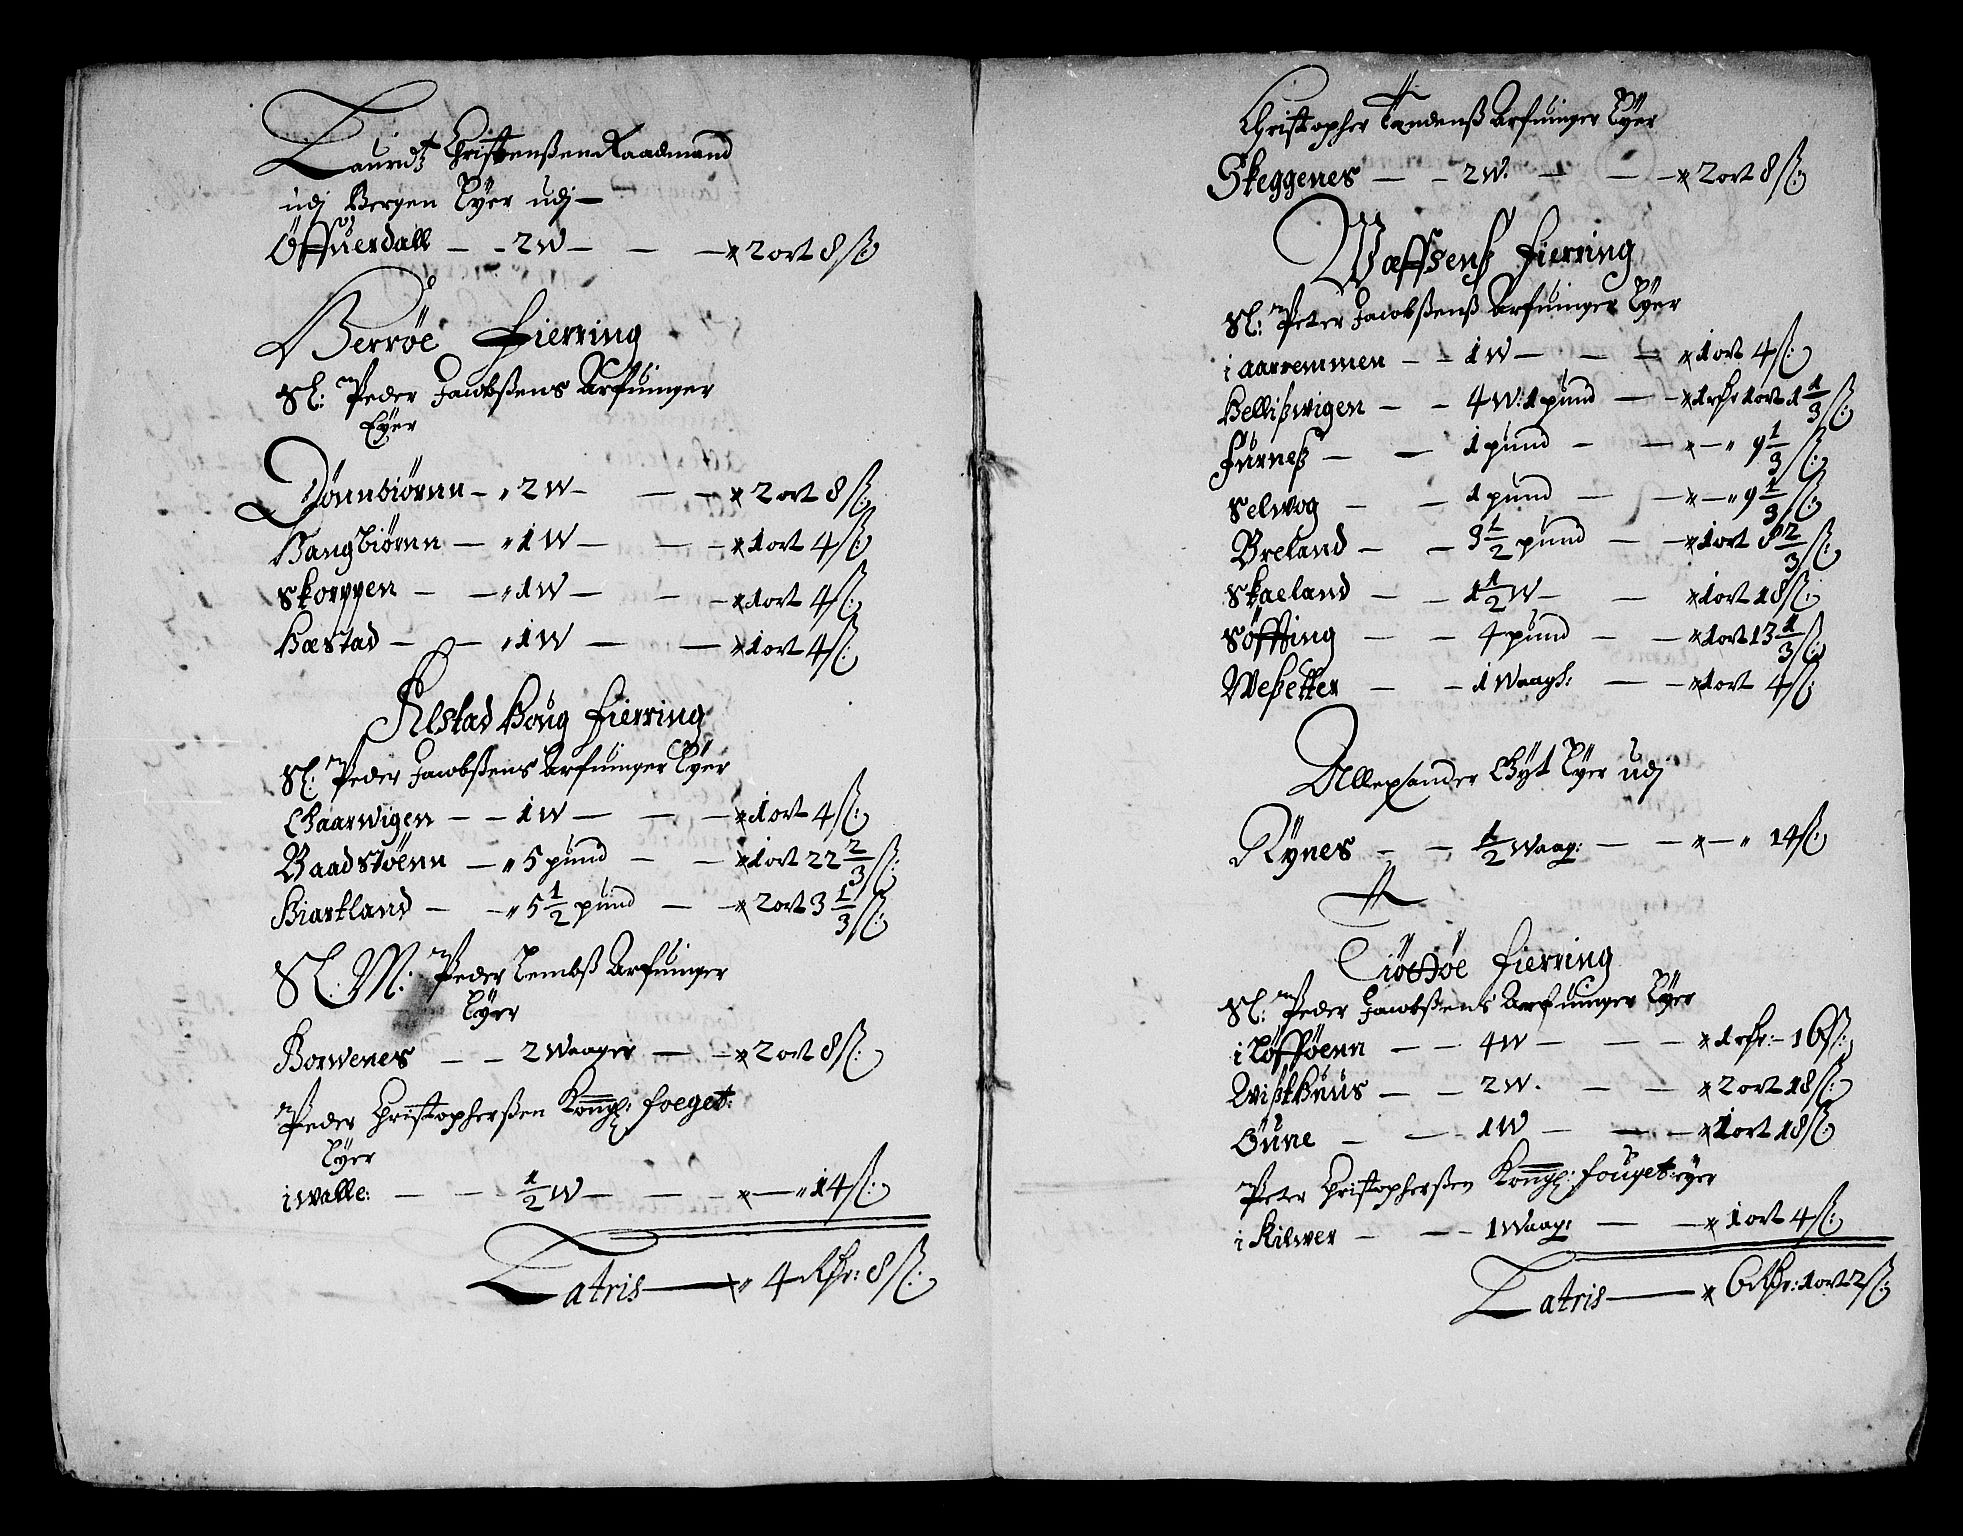 Lauridtz Christenßen Raadmand
udj Bergen Eyer udj —
Öffuerdall — — 2 W — — — 2 ort 8 ß:
Herröe Fierring
Sl: Peder Jacobßens Arfuinger
Eyer
Dönnbiörnn — 2 W — — — 2 ort 8 ß:
Hangbiörnn — 1 W — — — 1 ort 4 ß:
Skorppen — — 1 W — — — 1 ort 4 ß:
Hæstad — — 1 W — — 1 ort 4 ß:
Alstad Houg Fierring
Sl: Peder Jacobßens Arfuinger Eyer
Haarwigen — — 1 W — — — 1 ort 4 ß:
Baadstöenn — 5 pund — — 1 ort 22 2/3 ß:
Biartland — — 5 1/2 pund — — 2 ort 3 1/3 ß:
Sl. M: Peder Lembß Arfuinger
Eyer
Borwenes — — 2 Waager — — 2 ort 8 ß:
Peder Christopherßen Konngl: foeget:
Eyer
i walle: — — 1/2 W — — — 14 ß:
Latris — 4 Rdr: 8 ß:
Christopher Arfuinger Eyer
Skeggenes — — 2 W: — — — 2 ort 8 ß:
Wæffsenß Fierring
Sl: Peter Jacobßenß Arfuinger Eyer
i aaremmen — — 1 W — — — 1 ort 4 ß:
Hellißwigen — — 4 W: 1 pund — — 1 rdr 1 ort 1 1/3 ß:
Furneß — — 1 pund — — — 9 1/3 ß:
Selwog — — 1 pund — — — 9 1/3 ß:
Breland — — 3 1/2 pund — — 1 ort 8 2/3 ß:
Skaeland — — 1 1/2 W — — 1 ort 18 ß:
Söffting — — 4 pund — — 1 ort 13 1/3 ß:
Weßetter — — 1 Waag: — — 1 ort 4 ß:
Allexander Eyer udj
Rynes — — 1/2 Waag: — — — 14 ß:
Tiöttöe Fierring
Sl: Peder Jacobßens Arfuinger Eyer
i Löfföenn — — 4 W — — — 1 rdr: — 16 ß:
Wißthuus — — 2 W. — — — 2 ort 18 ß:
Öune — — 1 W — — — 1 ort 18 ß:
Peter Christopherßen Konngl: fouget: eyer
i Kilwer — — 1 Waag: — — 1 ort 4 ß:
Latris — 6 Rdr: 1 ort 2 ß: